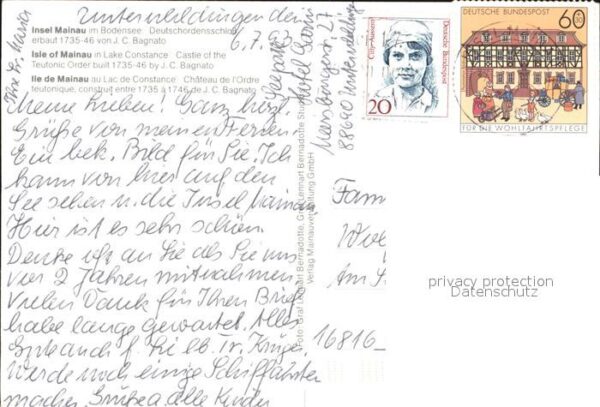 Unteruhldingen den
6.7.93
Insel Mainau im Bodensee Deutschordensschloß
erbaut 1735-46 von J. C. Bagnato
Isle of Mainau in Lake Constance Castle of the
Teutonic Order built 1735-46 by J. C. Bagnato
Ile de Mainau au Lac de Constance Château de l'Ordre
teutonique, construit entre 1735 à 1746 de J. C. Bagnato
Meine Lieben! Ganz herzl.
Grüße von meinen Ferien!
Ein bek. Bild für Sie. Ich
kann von hier auf den
See sehen u. die Insel Mainau
Hier ist es sehr schön.
Denke ich an Sie als Sie uns
vor 2 Jahren mitnahmen.
Vielen Dank für Ihren Brief
habe lange gewartet. Alles
f. Sie
Werde noch einige Schiffahrten
machen. Grüße a. alle Kinder
Ihre
Seeperle
Hotel Garni
27
88690
Foto: Graf Lennart Bernadotte, Graf Lennart Bernadotte
Verlag Mainauverwaltung GmbH
Cilly Aussem
Deutsche Bundespost
20
DEUTSCHE BUNDESPOST
60
FÜR DIE WOHLFAHRTSPFLEGE
Fam
Am
16816-
privacy protection
Datenschutz